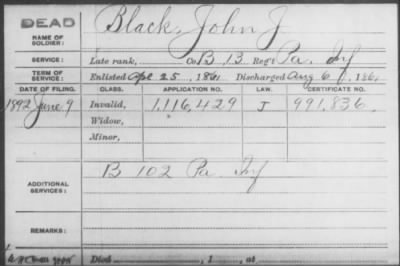 DEAD
NAME OF SOLDIER: Black, John J
SERVICE: Late rank, Co. B 13 Reg't Pa. Inf
TERM OF SERVICE: Enlisted Apl 25, 1861 Discharged Aug 6, 1861
DATE OF FILING. CLASS. APPLICATION NO. LAW. CERTIFICATE NO.
1892 June 9 Invalid, 1,116,429 J 991,836
Widow,
Minor,
ADDITIONAL SERVICES: B 102 Pa Inf
REMARKS:
Died , 1 , at